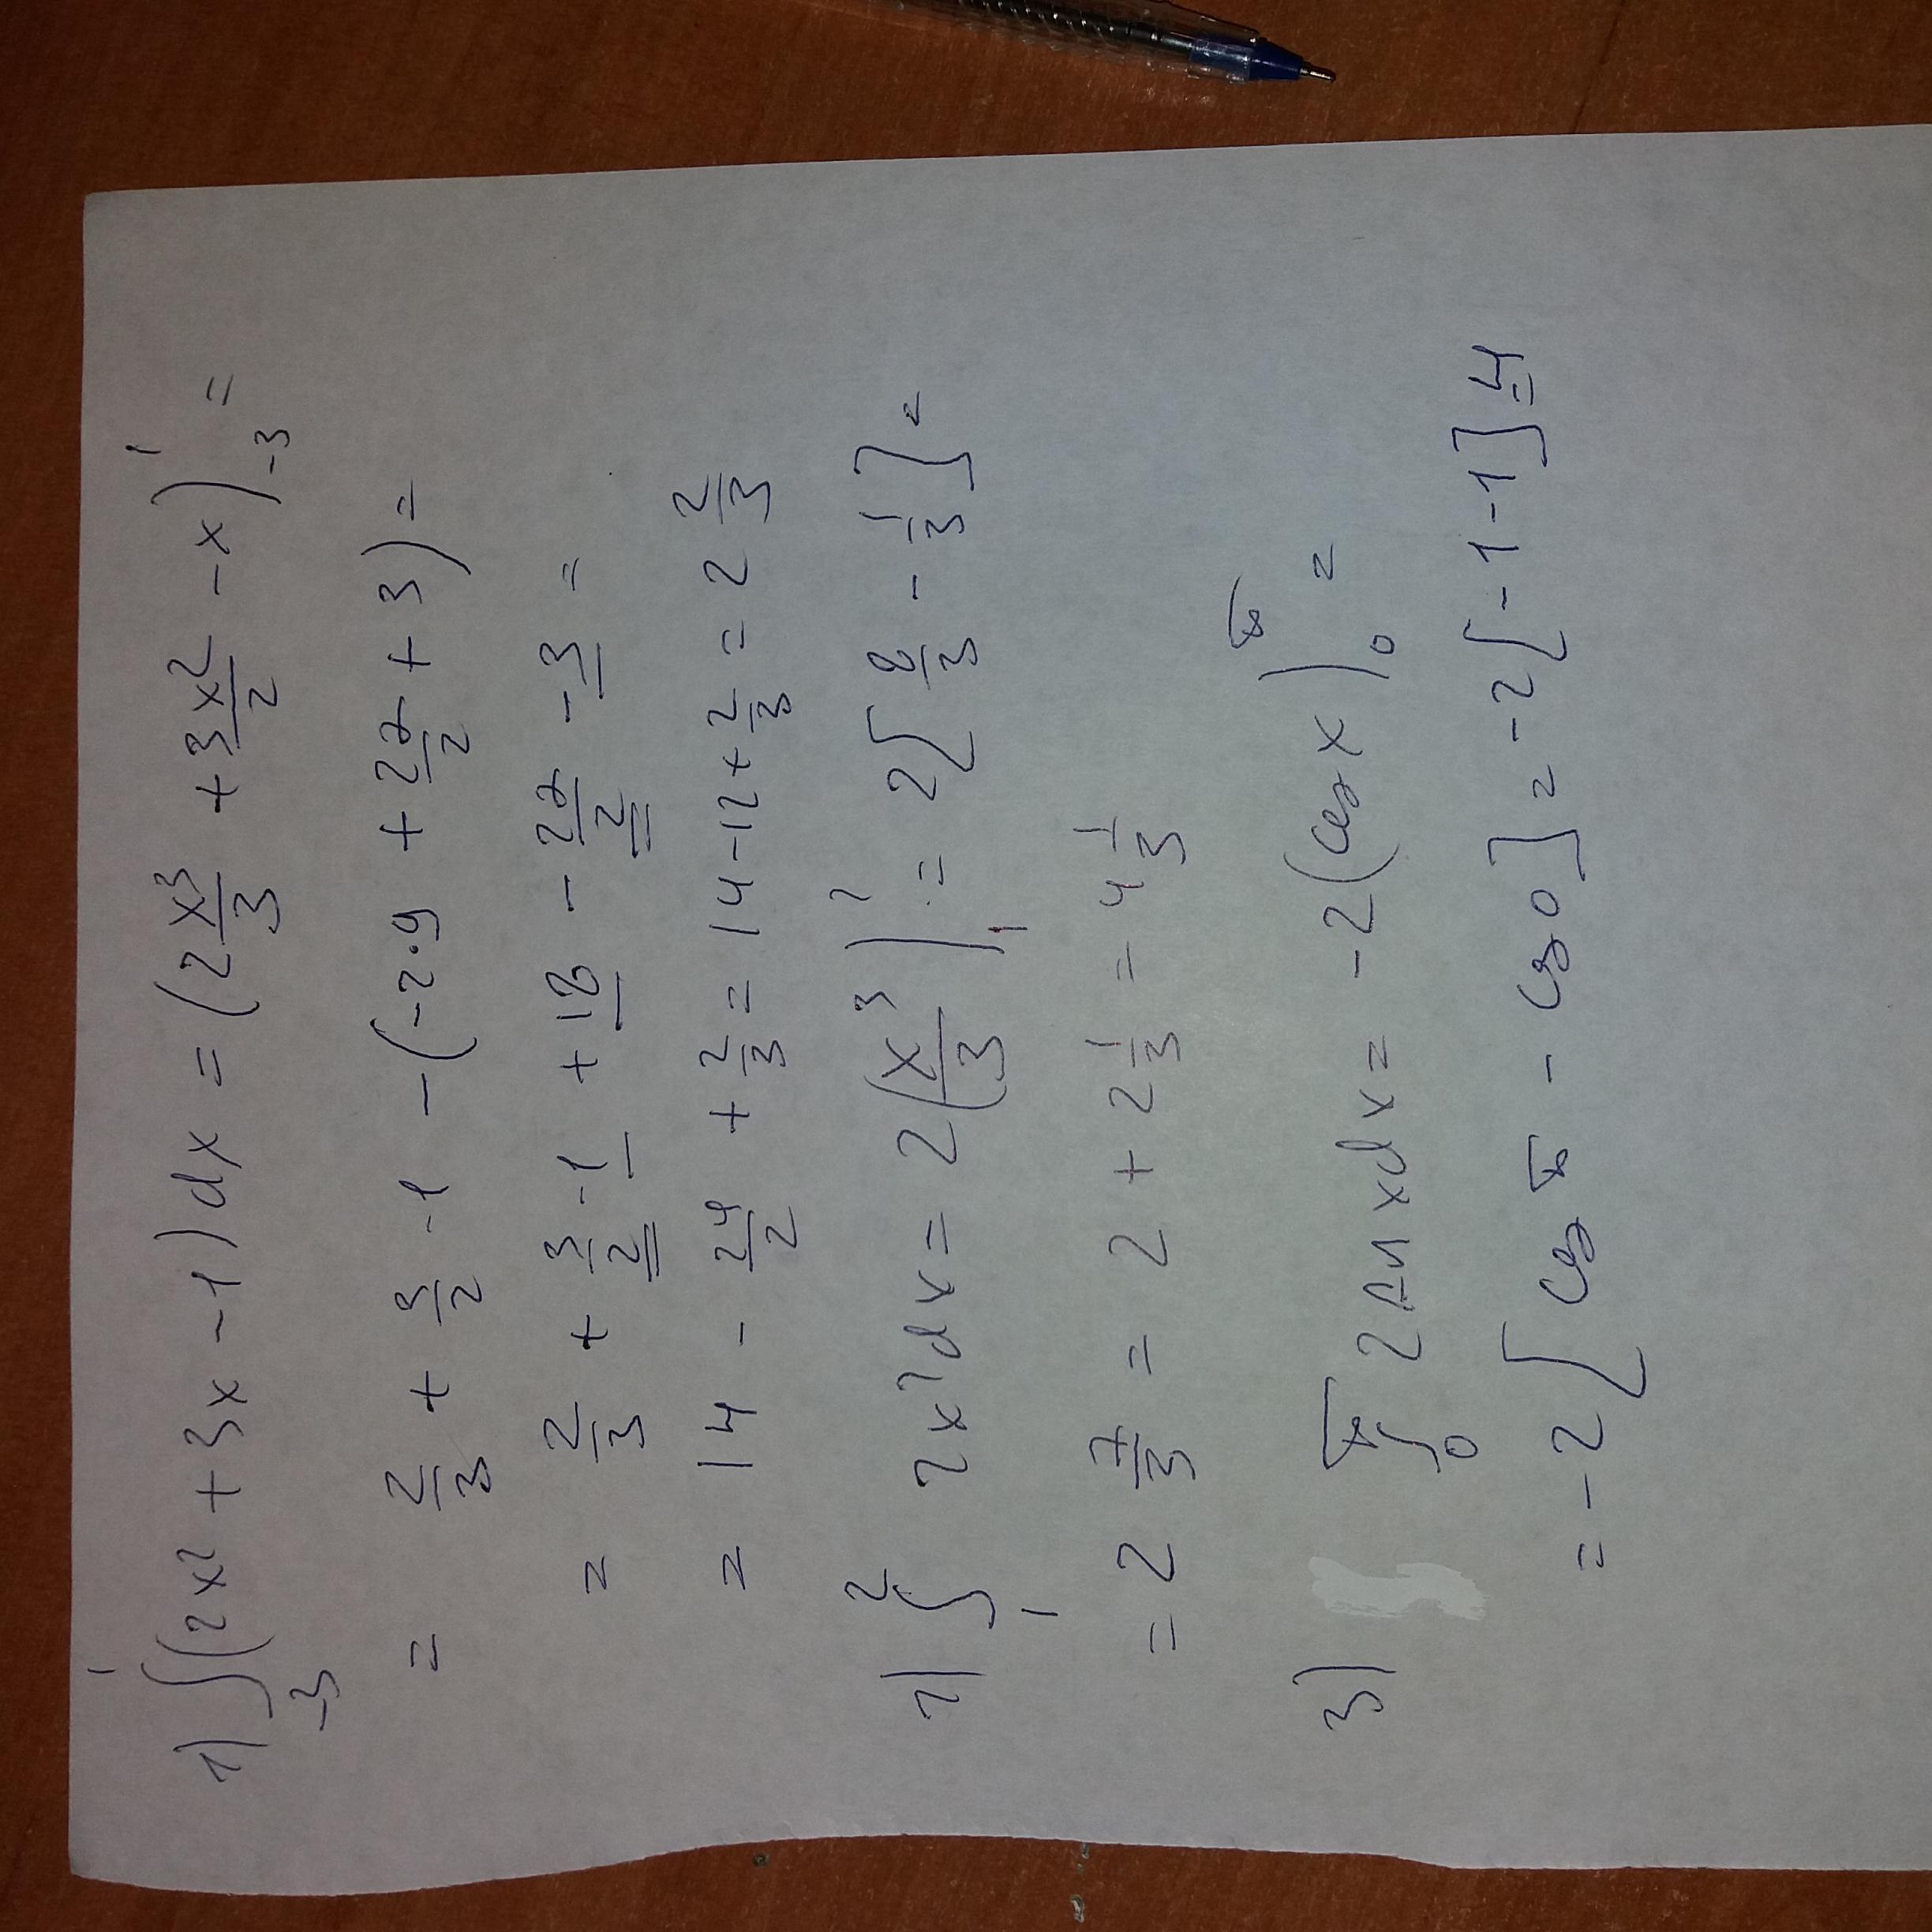 1) ∫₋₃¹ (2x² + 3x - 1) dx = (2x³/3 + 3x²/2 - x)₋₃¹ =
= 2/3 + 3/2 - 1 - (-2·9 + 27/2 + 3) =
= 2/3 + 3/2 - 1 + 18 - 27/2 - 3 =
= 14 - 24/2 + 2/3 = 14 - 12 + 2/3 = 2 2/3
2) ∫₁² 2x² dx = 2(x³/3)₁² = 2[8/3 - 1/3] =
= 2 7/3 = 2 + 2 1/3 = 4 1/3
3) ∫₀^π 2 sin x dx = -2(cos x)₀^π =
= -2[cos π - cos 0] = -2[-1-1] = 4